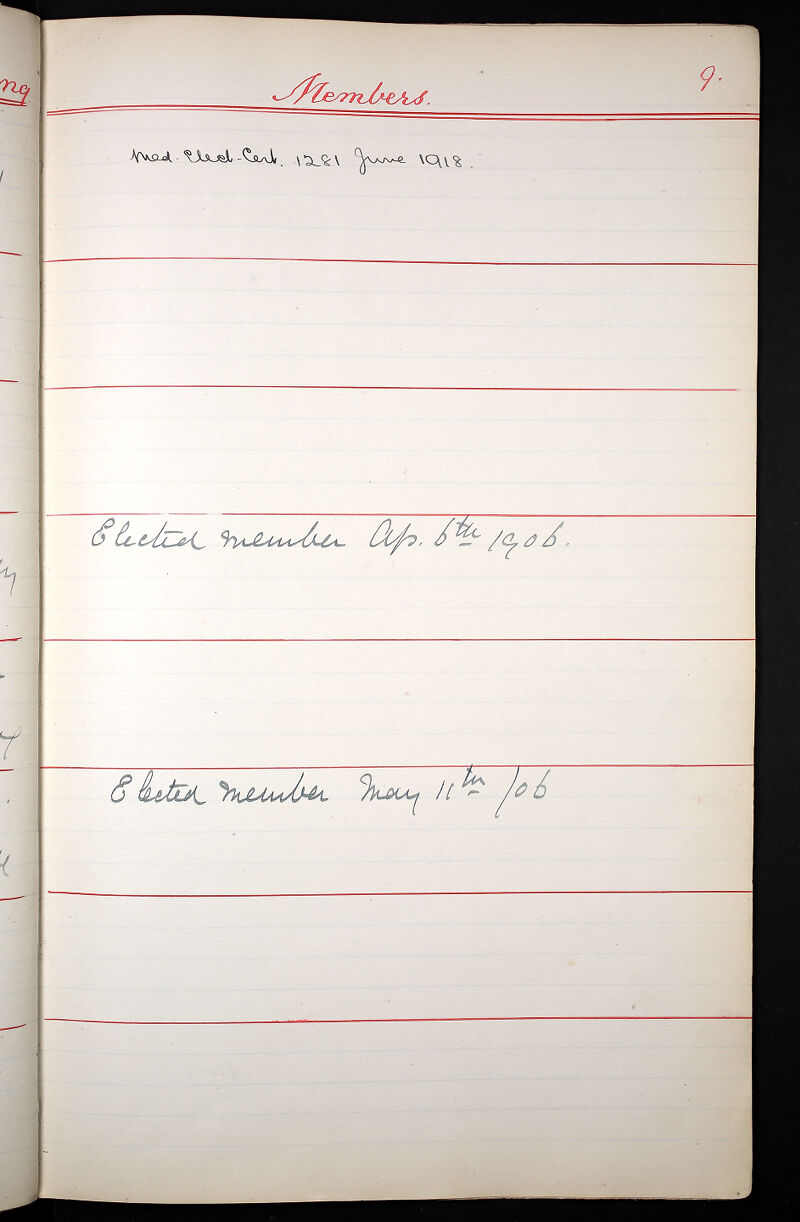 Members.
9.
Med. Elect-Cert. 1281 June 1918.
Elected member Ap. 6th 1906.
Elected member May 11th /06